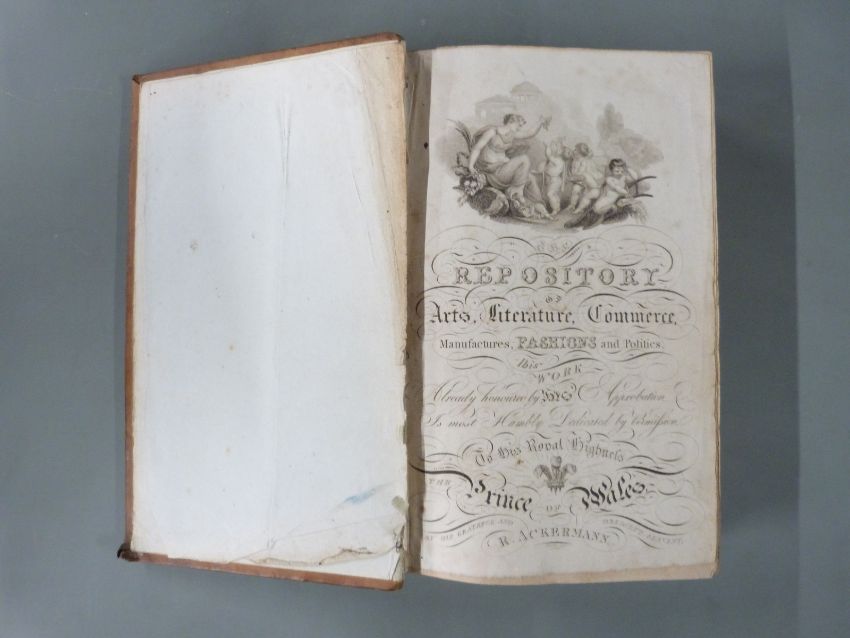 THE
REPOSITORY
OF
Arts, Literature, Commerce,
Manufactures, FASHIONS and Politics.
This
WORK
Already honoured by HIS Approbation
Is most Humbly Dedicated by Permission
To His Royal Highness
THE
Prince OF Wales
BY HIS GRATEFUL AND
SERVANT,
R. ACKERMANN.